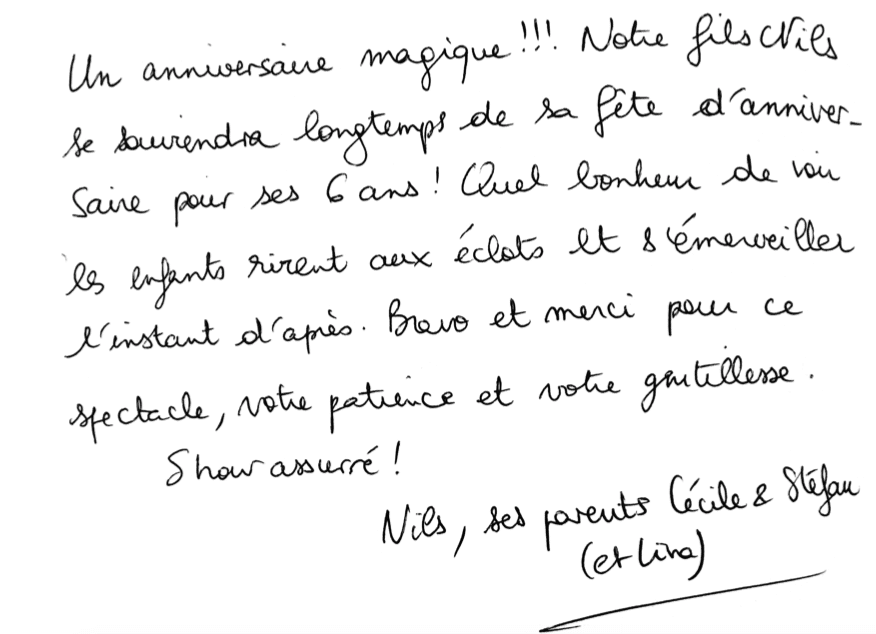 Un anniversaire magique !!! Notre fils Nils
se souviendra longtemps de sa fête d'anniver-
saire pour ses 6 ans ! Quel bonheur de voir
les enfants rirent aux éclats et s'émerveiller
l'instant d'après. Bravo et merci pour ce
spectacle, votre patience et votre gentillesse.
Show assurré !
Nils, ses parents Cécile & Stéfan
(et Lina)